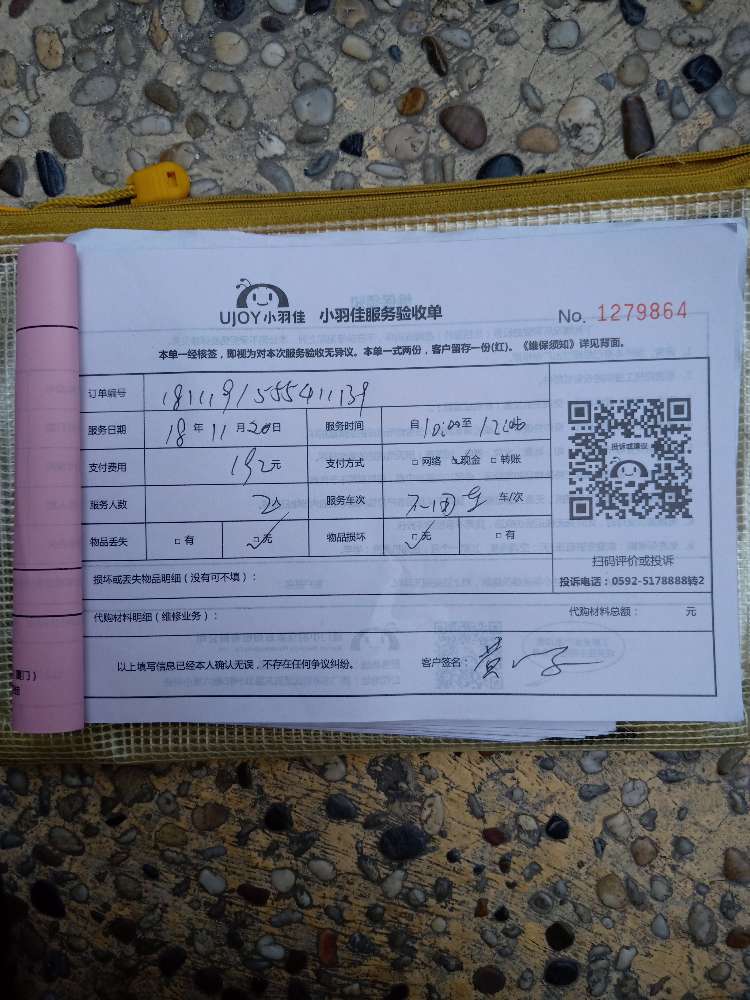 UJOY小羽佳 小羽佳服务验收单 No. 1279864
本单一经核签，即视为对本次服务验收无异议。本单一式两份，客户留存一份(红)。《维保须知》详见背面。
订单编号 181119155541139
服务日期 18年11月20日 服务时间 自10:00至12:00
支付费用 192元 支付方式 □网络 ☑现金 □转账
服务人数 2人 服务车次 车/次
物品丢失 □有 ☑无 物品损坏 ☑无 □有
投诉或建议
扫码评价或投诉
损坏或丢失物品明细（没有可不填）：
投诉电话：0592-5178888转2
代购材料明细（维修业务）： 代购材料总额： 元
以上填写信息已经本人确认无误，不存在任何争议纠纷。 客户签名：黄